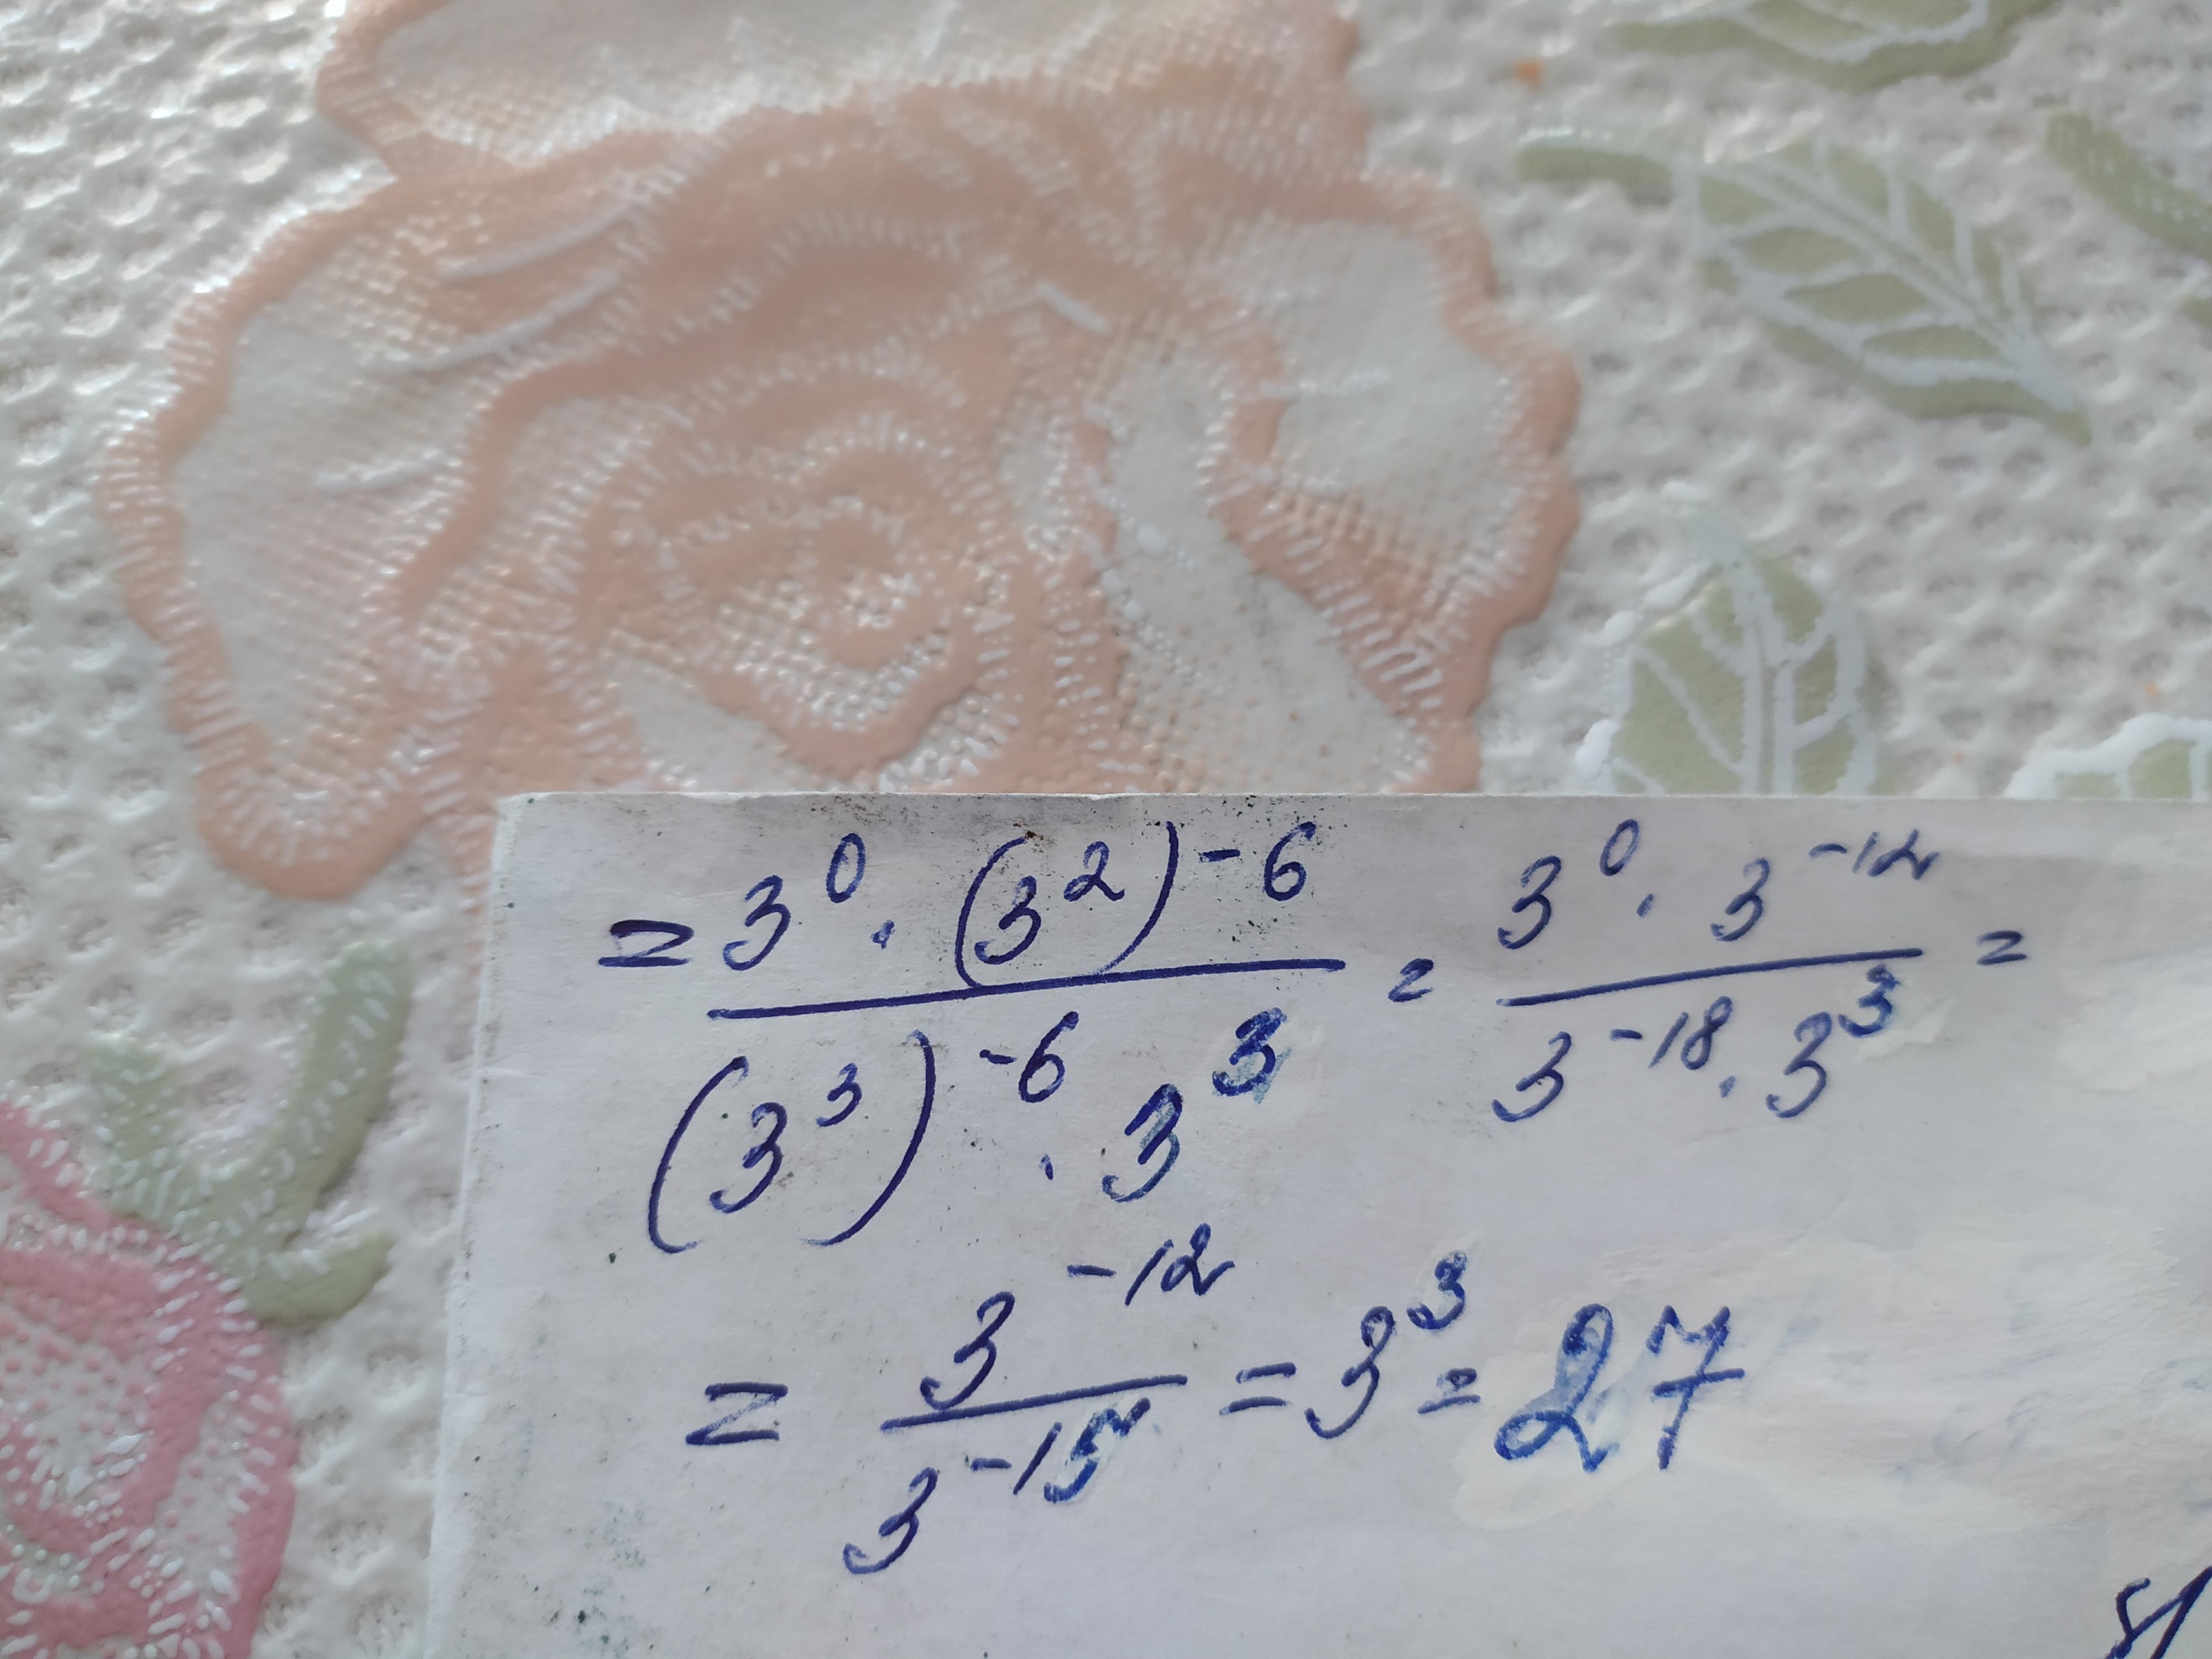 = 3⁰ · (3²)⁻⁶ / (3³)⁻⁶ · 3³ = 3⁰ · 3⁻¹² / 3⁻¹⁸ · 3³ =
= 3⁻¹² / 3⁻¹⁵ = 3³ = 27